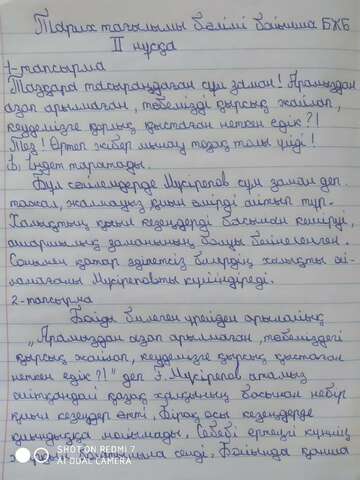 Тарих тағылымы бөлімі бойынша БЖБ
II нұсқа
1-тапсырма
Тағдыра тасыраңдаған сұм заман! Арамыздан
азап арылмаған, төбемізді қырсық жайлап,
кеудемізге қорлық қыстаған неткен едік?!
Тез! Өртеп жібер мынау тозақ толы үйді!
Ь. Індет таратады.
Бұл сөйлемдерде Мүсірепов сұм заман деп
тажал, жалмауыз қиын өмірді айтып тұр.
Халықтың қиын кезеңдерді басынан кешіруі,
ашаршылық заманының болуы бейнеленген.
Сонымен қатар әділетсіз билердің халықты ай-
налағаны Мүсіреповты күйіндіреді.
2-тапсырма
Бойды билеген үрейден арылайық
„Арамыздан азап арылмаған, төбемізді
қырсық жайлап, кеудемізге қырсық қыстаған
неткен едік?!" деп Ғ. Мүсірепов атамыз
айтқандай қазақ халқының басынан небір
қиын кезеңдер өтті. Бірақ осы кезеңдерде
қиындыққа мойымады. Себебі ертеңгі күннің
жарқын болатынына сенді. Бойында қанша
SHOT ON REDMI 7
AI DUAL CAMERA